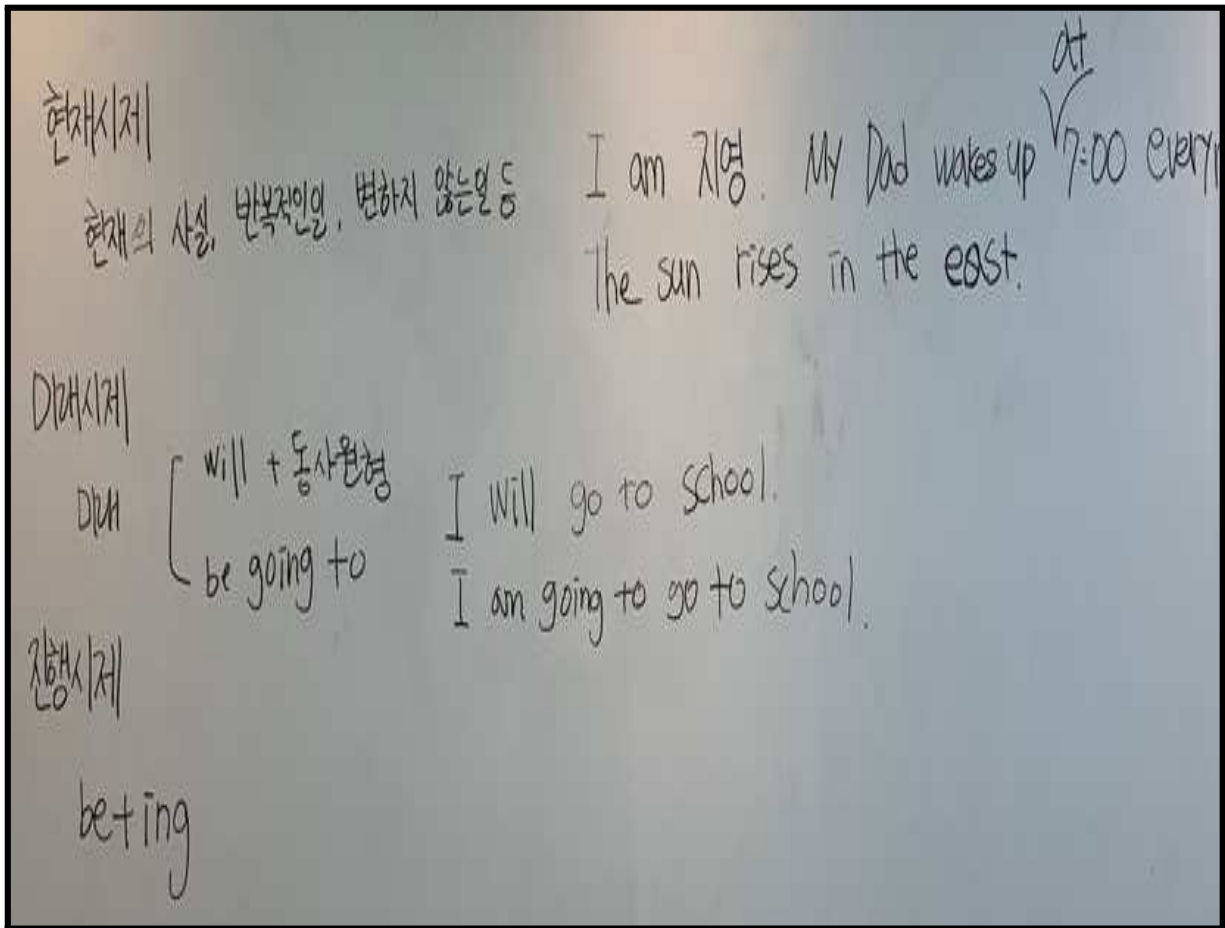 현재시제
현재의 사실, 반복적인일, 변하지 않는일 등
I am 지영. My Dad wakes up at 7:00
The sun rises in the east.
미래시제
미래
will + 동사원형
I will go to school.
be going to
I am going to go to school.
진행시제
be+ing